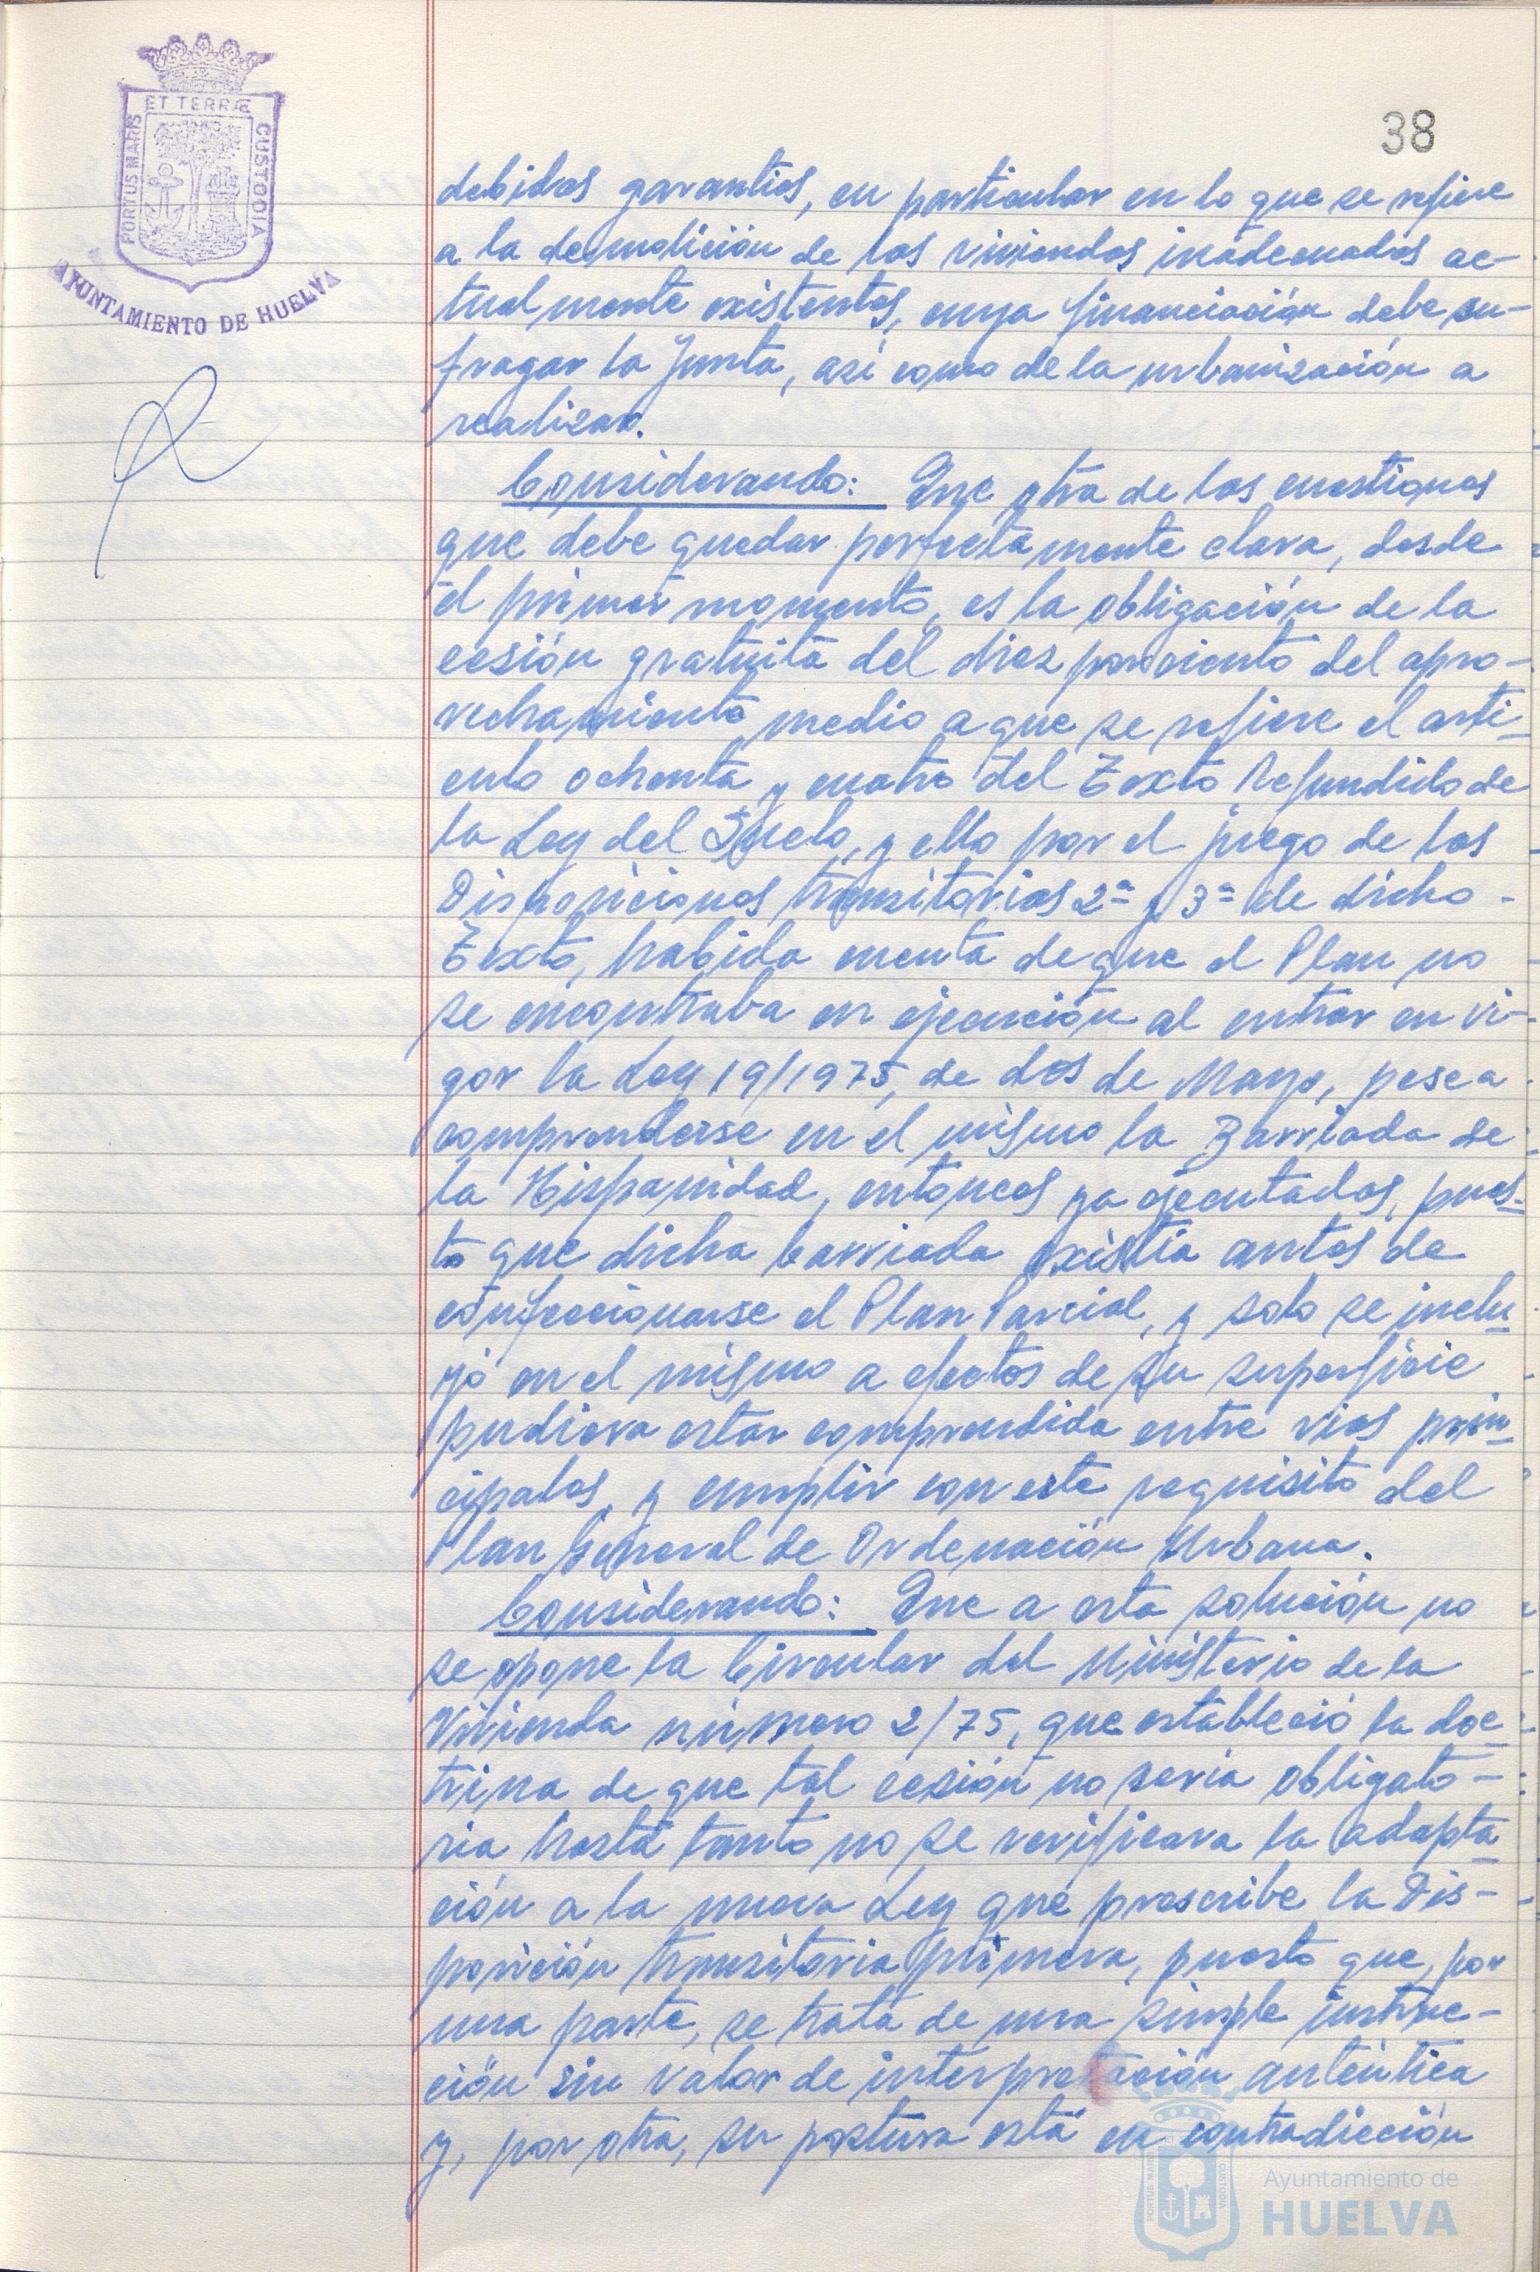 ET TERRÆ
PORTUS MARIS
CUSTODIA
AYUNTAMIENTO DE HUELVA
38
debidas garantías, en particular en lo que se refiere
a la demolición de las viviendas inadecuadas ac-
tualmente existentes, cuya financiación debe su-
fragar la Junta, así como de la urbanización a
realizar.
Considerando: Que otra de las cuestiones
que debe quedar perfectamente clara, desde
el primer momento, es la obligación de la
cesión gratuita del diez por ciento del apro-
vechamiento medio a que se refiere el artí-
culo ochenta y cuatro del Texto Refundido de
la Ley del Suelo, y ello por el juego de las
Disposiciones transitorias 2ª y 3ª de dicho -
Texto, habida cuenta de que el Plan no
se encontraba en ejecución al entrar en vi-
gor la Ley 19/1975, de dos de Mayo, pese a
comprenderse en el mismo la Barriada de
la Hispanidad, entonces ya ejecutadas, pues-
to que dicha barriada existía antes de
confeccionarse el Plan Parcial, y solo se inclu-
yó en el mismo a efectos de su superficie
pudiera estar comprendida entre vías prin-
cipales, y cumplir con este requisito del
Plan General de Ordenación Urbana.
Considerando: Que a esta solución no
se opone la Circular del Ministerio de la
Vivienda número 2/75, que estableció la doc-
trina de que tal cesión no sería obligato-
ria hasta tanto no se verificara la adapta
ción a la nueva Ley que prescribe la Dis-
posición transitoria primera, puesto que, por
una parte, se trata de una simple instruc-
ción sin valor de interpretación auténtica
y, por otra, su postura está en contradicción
Ayuntamiento de
HUELVA